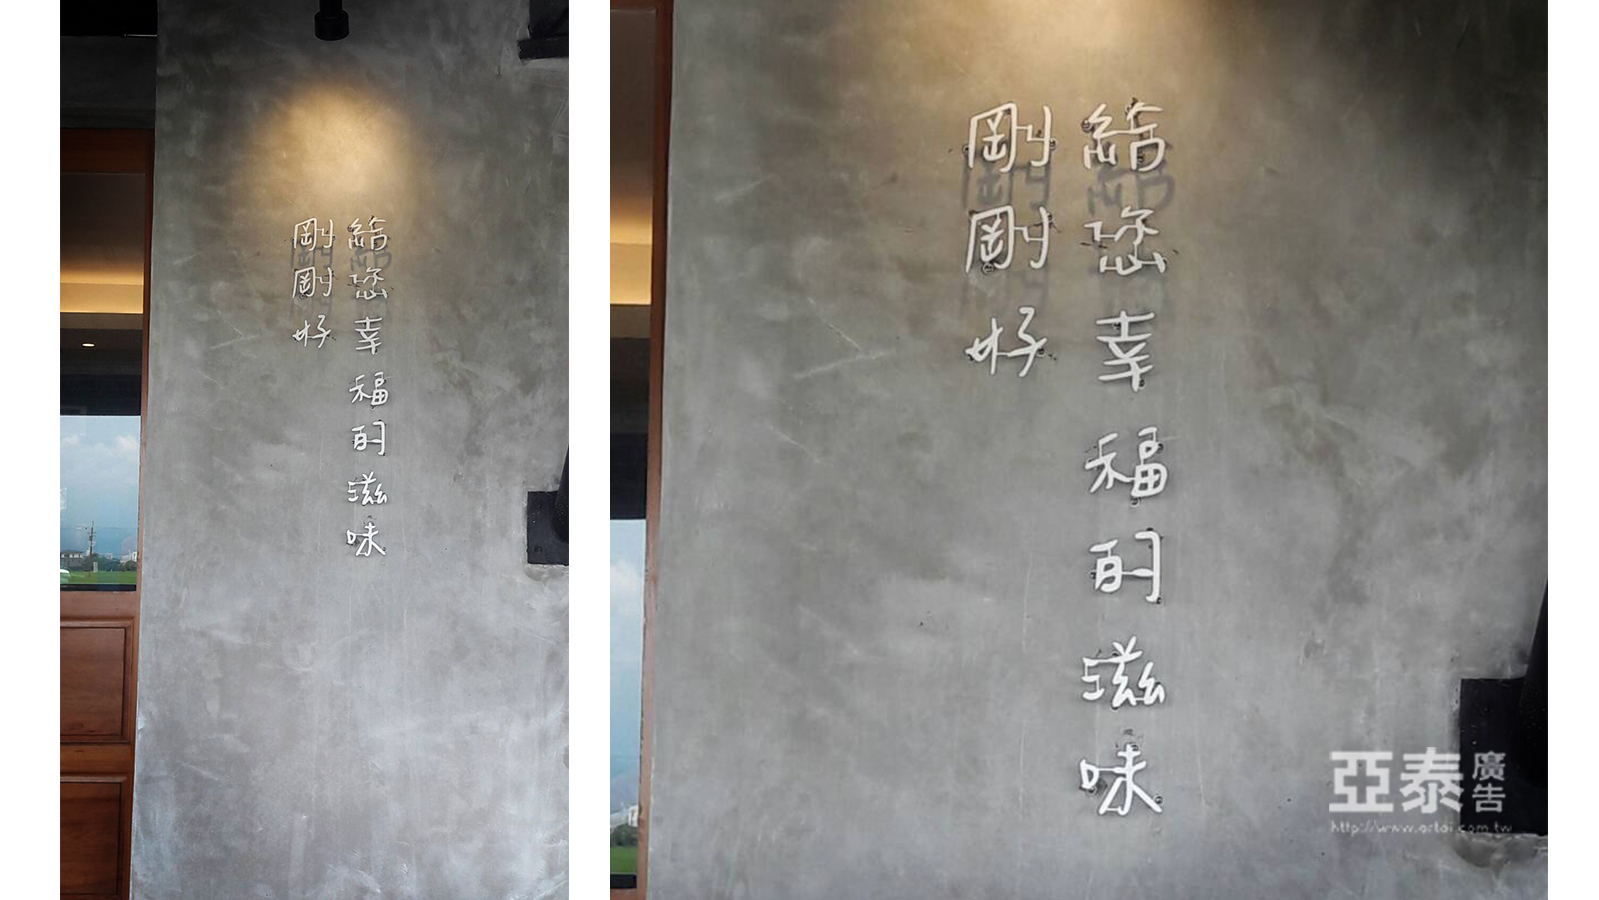 給您幸福的滋味
剛剛好
給您幸福的滋味
剛剛好
亞泰廣告
http://www.artai.com.tw